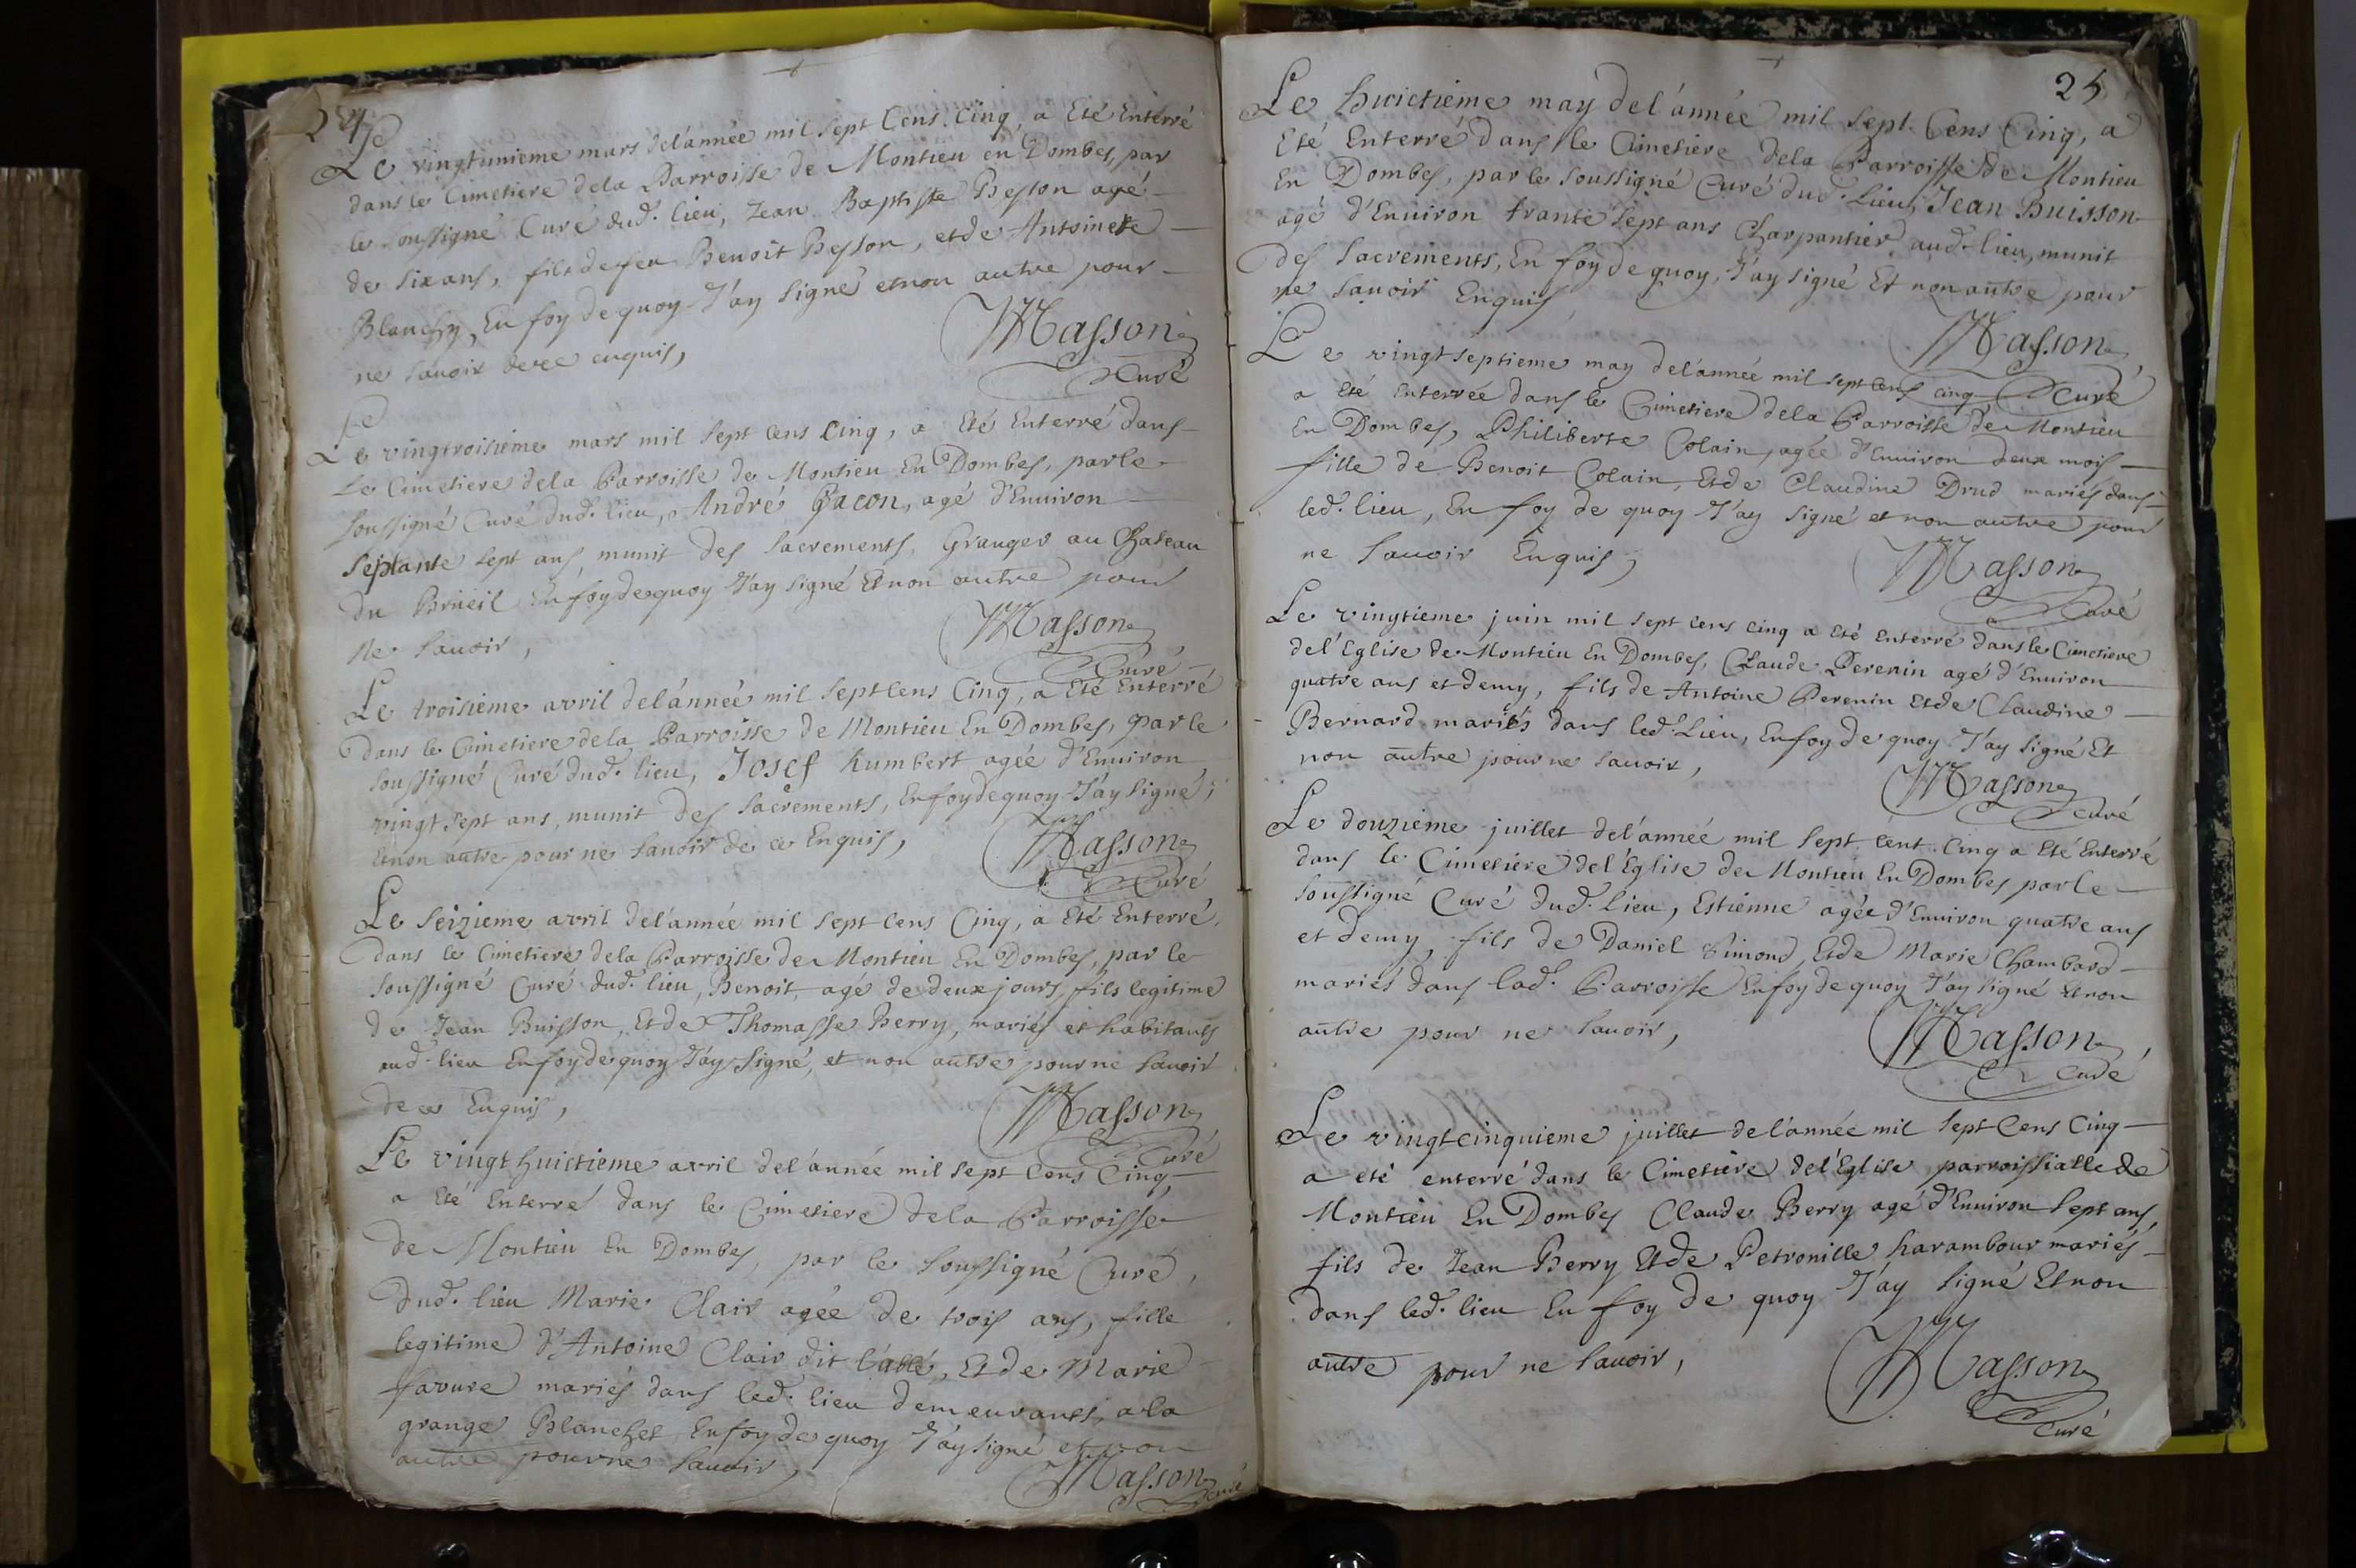 24
Le vingtunieme mars de l'année mil sept Cens Cinq, a Eté Enterré
dans le Cimetiere de la Parroisse de Montieu en Dombes, par
le soussigné Curé dud. lieu, Jean Baptiste Besson agé
de six ans, fils de feu Benoit Besson, et de Antoinete
Blanchy, En foy de quoy J'ay signé et non autre pour
ne savoir de ce enquis,
Masson
Curé
Le vingtroisième mars mil sept cens cinq, a Eté Enterré dans
Le Cimetiere de la Parroisse de Montieu En Dombes, par le
soussigné Curé dud. lieu, André Pacon, agé d'Enuiron
septante sept ans, munit des sacrements, Granger au Chateau
du Brüeil En foy de quoy J'ay signé Et non autre pour
ne sauoir,
Masson
Curé
Le troisième avril de l'année mil sept Cens Cinq, a Eté Enterré
dans le Cimetiere de la Parroisse de Montieu En Dombes, par le
soussigné Curé dud. lieu, Josef humbert agée d'Enuiron
vingt sept ans, munit des sacrements, En foy de quoy J'ay signé,
Et non autre pour ne sauoir de ce Enquis,
Masson
Curé
Le seizieme avril de l'année mil sept Cens Cinq, a Eté Enterré,
dans le Cimetiere de la Parroisse de Montieu En Dombes, par le
soussigné Curé dud. lieu, Benoit, agé de deux jours, fils legitime
de Jean Buisson, Et de Thomasse Berry, mariés et habitants
aud. lieu En foy de quoy J'ay signé, et non autre pour ne sauoir
de ce Enquis,
Masson
Curé
Le vingt huictieme avril de l'année mil sept Cens Cinq
a Eté Enterré dans le Cimetiere de la Parroisse
de Montieu En Dombes, par le soussigné Curé,
dud. lieu Marie Clair agée de trois ans, fille
legitime d'Antoine Clair dit l'allé, Et de Marie
favure mariés dans led. lieu demeurants a la
grange Blanchet En foy de quoy J'ay signé et non
autre pour ne sauoir,
Masson
Curé
25
Le huictieme may de l'année mil sept Cens Cinq, a
Eté Enterré dans le Cimetiere de la Parroisse de Montieu
En Dombes, par le soussigné Curé dud. Lieu, Jean Buisson
agé d'Enuiron trante sept ans Charpantier aud. lieu, munit
des sacrements, En foy de quoy, J'ay signé Et non autre pour
ne sauoir Enquis
Masson
Curé
Le vingt septieme may de l'année mil sept cens cinq
a Eté Enterrée dans le Cimetiere de la Parroisse de Montieu
En Dombes, Philiberte Colain, agée d'Enuiron deux mois
fille de Benoit Colain, Et de Claudine Drud mariés dans
led. lieu, En foy de quoy J'ay signé et non autre pour
ne sauoir Enquis,
Masson
Curé
Le vingtieme juin mil sept cens cinq a Eté Enterré dans le Cimetiere
de l'Eglise de Montieu En Dombes, Claude Perenin agé d'Enuiron
quatre ans et demy, fils de Antoine Perenin Et de Claudine
Bernard mariés dans led. Lieu, En foy de quoy J'ay signé Et
non autre pour ne sauoir,
Masson
curé
Le douzieme juillet de l'année mil sept cent Cinq a Eté Enterré
dans le Cimetiere de l'Eglise de Montieu En Dombes par le
soussigné Curé dud. lieu, Estienne agée d'Enuiron quatre ans
et demy, fils de Daniel Simond, Et de Marie Chambard
mariés dans lad. Parroisse En foy de quoy J'ay signé Et non
autre pour ne sauoir,
Masson
Curé
Le vingtcinquieme juillet de l'année mil sept Cens Cinq
a eté enterré dans le Cimetiere de l'Eglise parroissialle de
Montieu En Dombes Claude Berry agé d'Enuiron sept ans,
fils de Jean Berry Et de Petronille harambour mariés
dans led. lieu En foy de quoy J'ay signé Et non
autre pour ne sauoir,
Masson
Curé